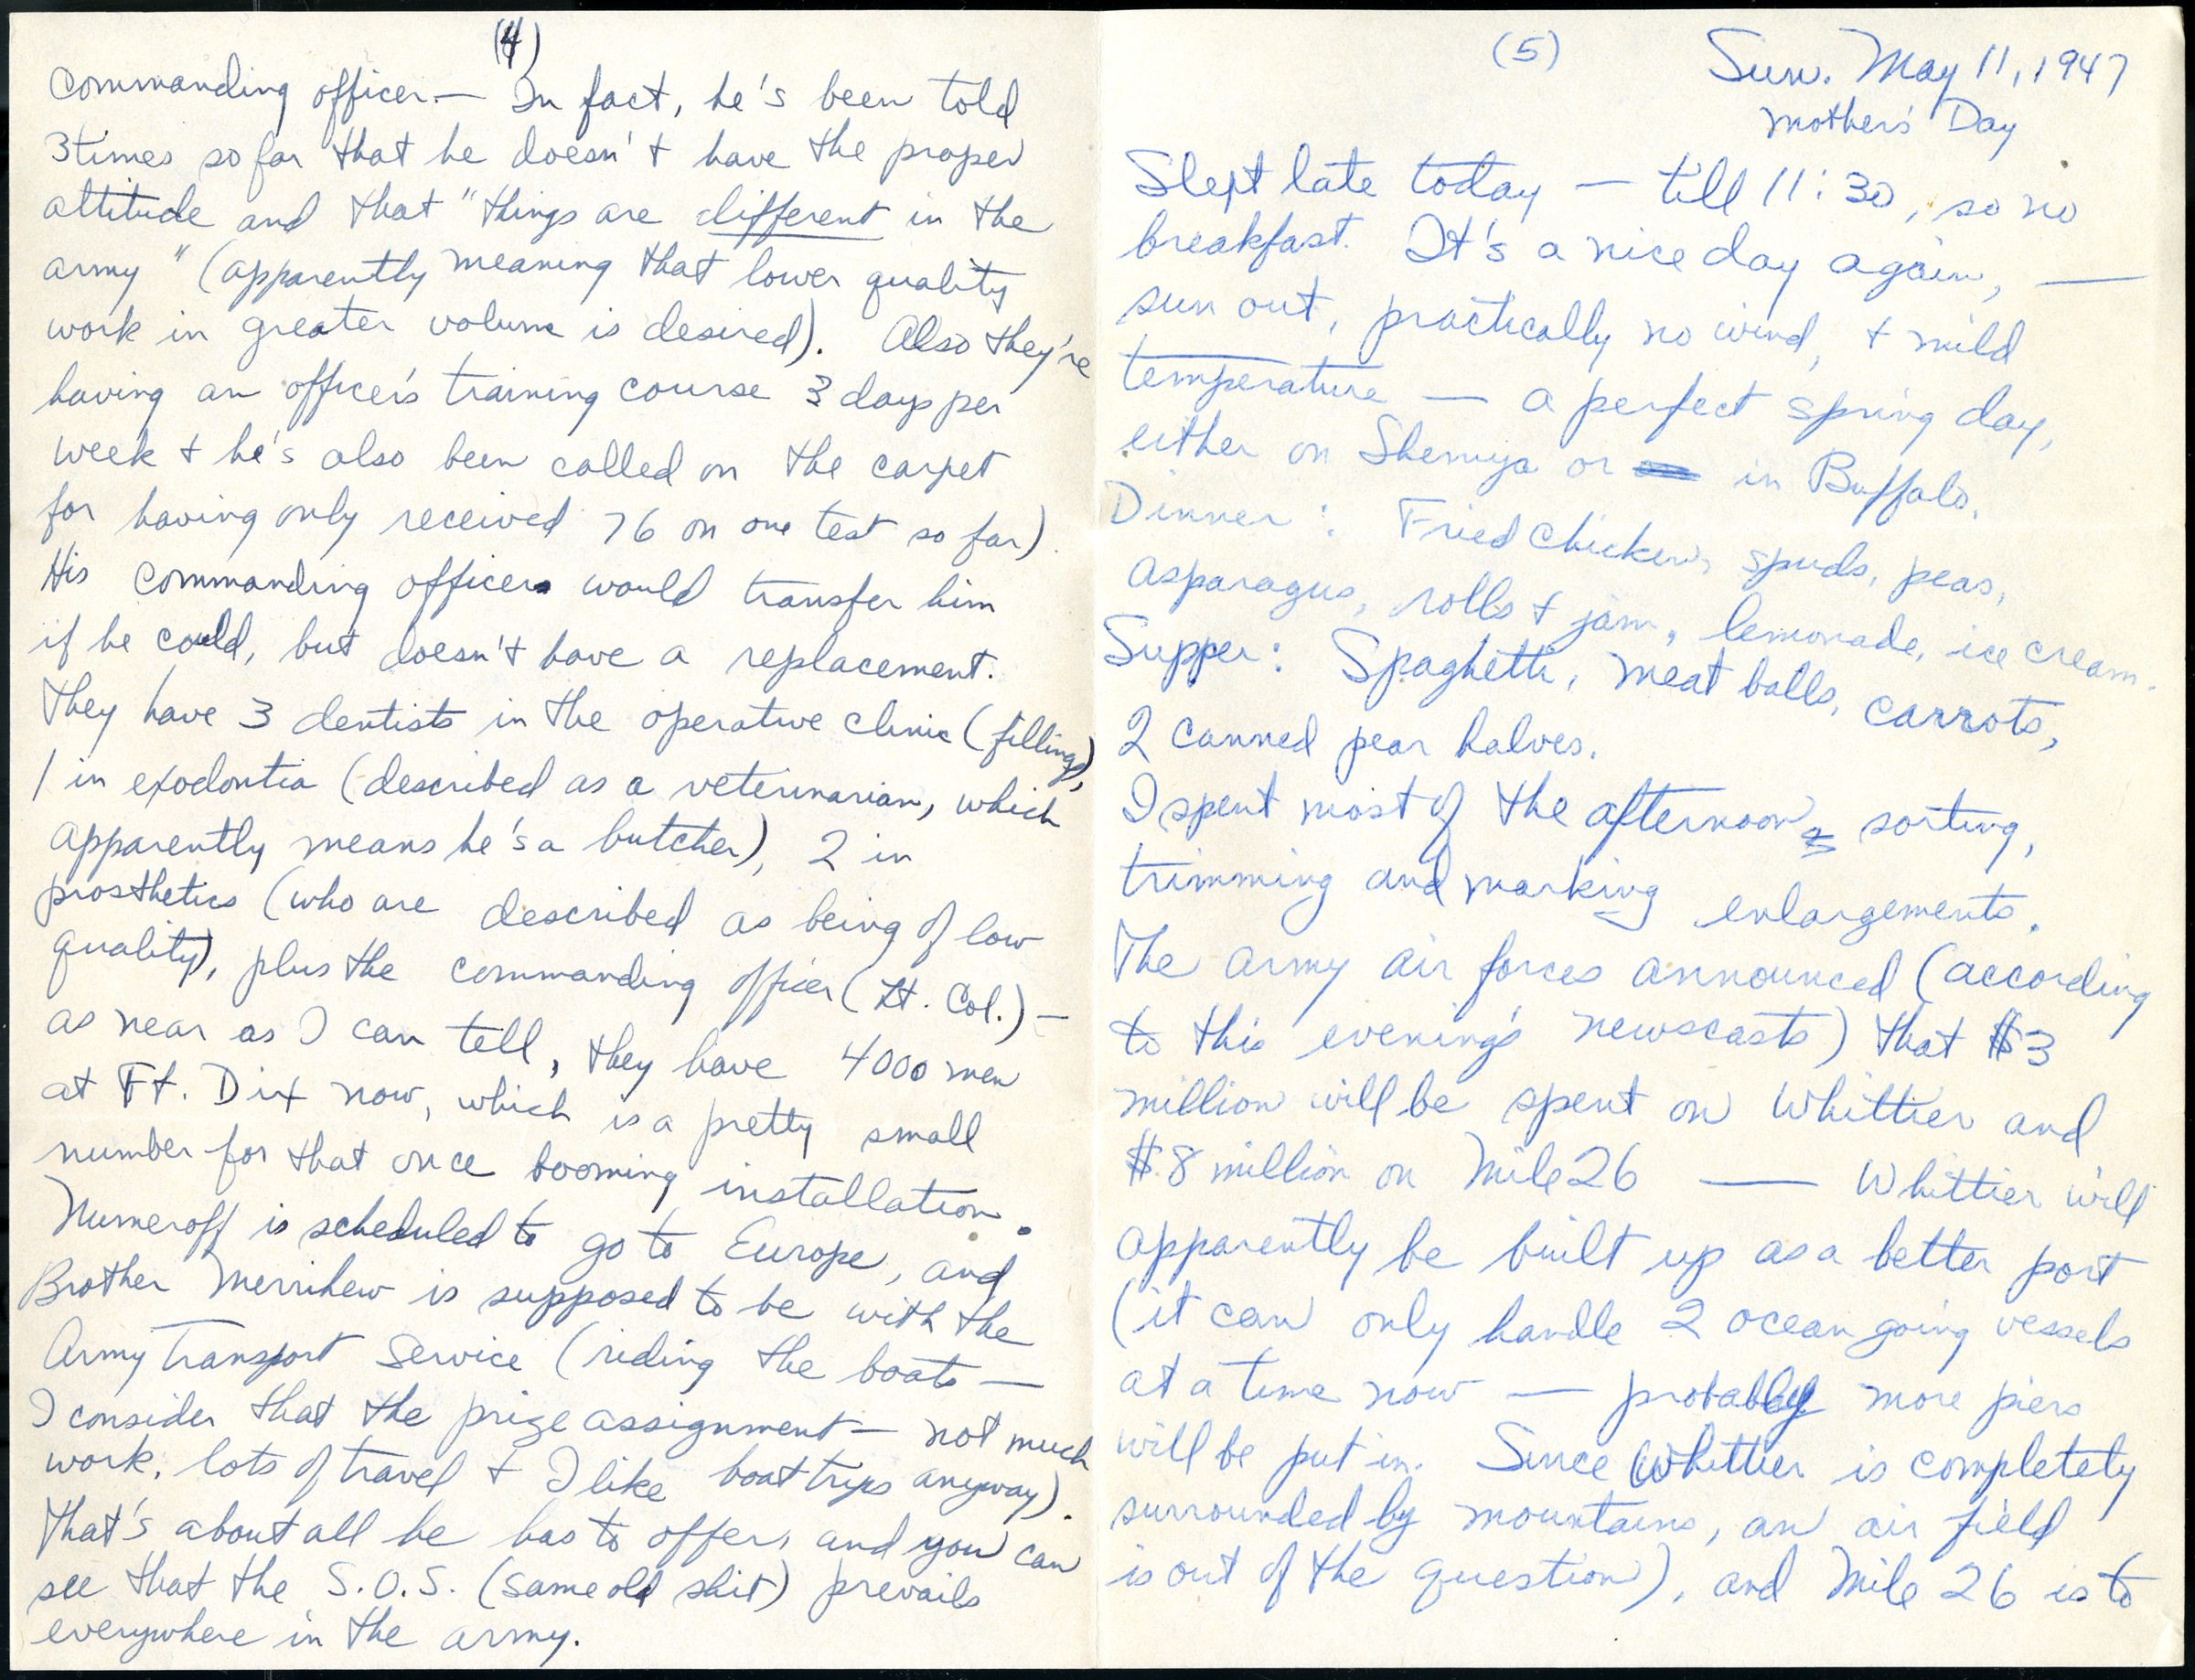 (4)
commanding officer. — In fact, he's been told
3 times so far that he doesn't have the proper
attitude and that "things are different in the
army" (apparently meaning that lower quality
work in greater volume is desired). Also they're
having an officer's training course 3 days per
week + he's also been called on the carpet
for having only received 76 on one test so far).
His commanding officer would transfer him
if he could, but doesn't have a replacement.
They have 3 dentists in the operative clinic (fillings),
1 in exodontia (described as a veterinarian, which
apparently means he's a butcher), 2 in
prosthetics (who are described as being of low
quality), plus the commanding officer (Lt. Col.) —
as near as I can tell, they have 4000 men
at Ft. Dix now, which is a pretty small
number for that once booming installation.
Numeroff is scheduled to go to Europe, and
Brother Merrihew is supposed to be with the
Army Transport Service (riding the boats —
I consider that the prize assignment — not much
work, lots of travel + I like boat trips anyway).
That's about all he has to offer, and you can
see that the S.O.S. (same old shit) prevails
everywhere in the army.
(5) Sun. May 11, 1947
Mother's Day
Slept late today — till 11:30, so no
breakfast. It's a nice day again, —
sun out, practically no wind, + mild
temperature — a perfect spring day,
either on Shemya or in Buffalo.
Dinner: Fried chicken, spuds, peas,
asparagus, rolls + jam, lemonade, ice cream.
Supper: Spaghetti, meat balls, carrots,
2 canned pear halves.
I spent most of the afternoon sorting,
trimming and marking enlargements.
The army air forces announced (according
to this evening's newscasts) that $3
million will be spent on Whittier and
$8 million on Mile 26 — Whittier will
apparently be built up as a better port
(it can only handle 2 ocean going vessels
at a time now — probably more piers
will be put in. Since Whittier is completely
surrounded by mountains, an air field
is out of the question), and Mile 26 is to